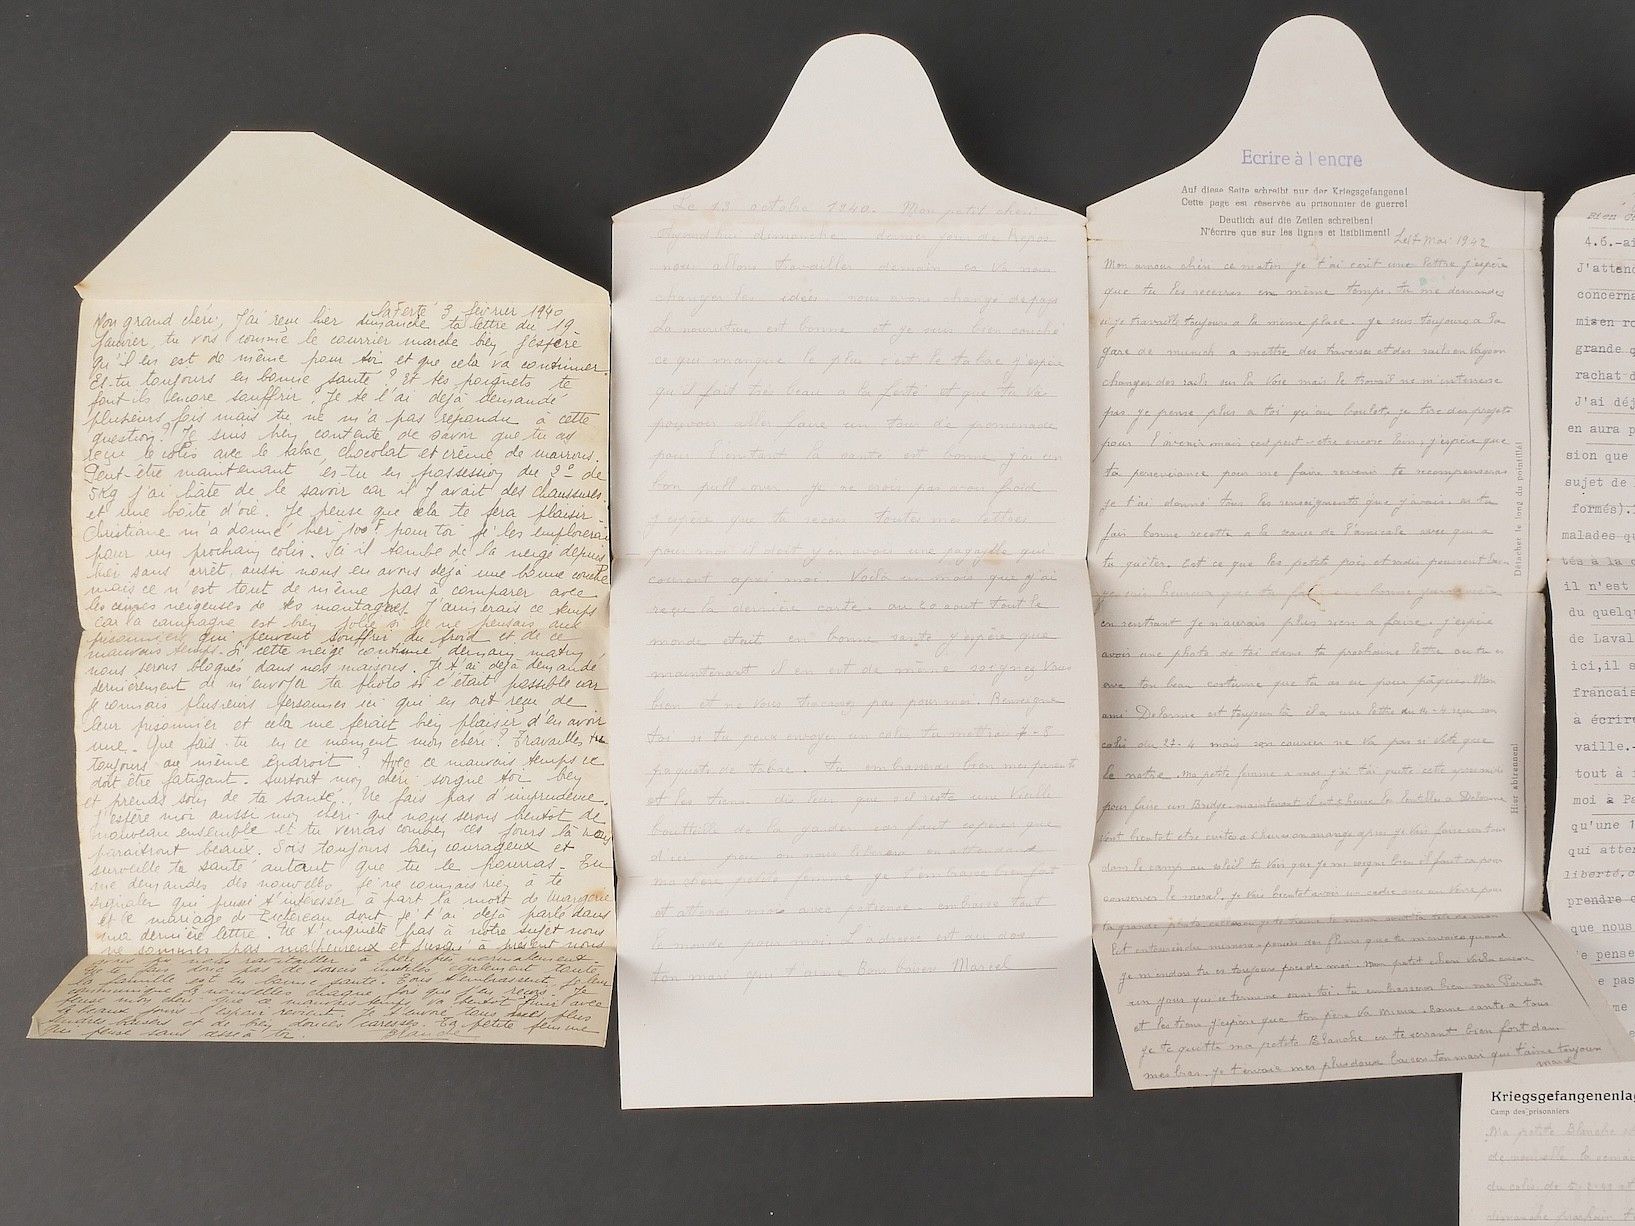 La ferté 3 février 1940
Mon grand chéri, J'ai reçu hier dimanche ta lettre du 19
janvier, tu vois comme le courrier marche bien j'espère
qu'il en est de même pour toi et que cela va continuer.
Es-tu toujours en bonne santé ? Et tes poignets te
font ils encore souffrir ? Je te l'ai déjà demandé
plusieurs fois mais tu ne m'a pas répondu à cette
question ? Je suis bien contente de savoir que tu as
reçu le colis avec le tabac, chocolat et crème de marrons.
Peut-être maintenant es-tu en possession du 2e de
5Kg j'ai hâte de le savoir car il y avait des chaussures
et une boîte d'oie. Je pense que cela te fera plaisir
Christiane m'a donné hier 100F pour toi je les emploierai
pour un prochain colis. Ici il tombe de la neige depuis
hier sans arrêt, aussi nous en avons déjà une bonne couche
mais ce n'est tout de même pas à comparer avec
les cimes neigeuses de tes montagnes. J'aimerais ce temps
car la campagne est bien jolie si je ne pensais aux
prisonniers qui peuvent souffrir du froid et de ce
mauvais temps. Si cette neige continue demain matin
nous serons bloqués dans nos maisons. Je t'ai déjà demandé
dernièrement de m'envoyer ta photo si c'était possible car
je connais plusieurs personnes ici qui en ont reçu de
leur prisonnier et cela me ferait bien plaisir d'en avoir
une. Que fais-tu en ce moment mon chéri ? Travailles tu
toujours au même endroit ? Avec ce mauvais temps ce
doit être fatigant. Surtout mon chéri soigne toi bien
et prends soin de ta santé. Ne fais pas d'imprudence.
J'espère moi aussi mon chéri que nous serons bientôt de
nouveau ensemble et tu verras combien ces jours là nous
paraîtront beaux. Sois toujours bien courageux et
surveille ta santé autant que tu le pourras. Tu
me demandes des nouvelles, je ne connais rien à te
signaler qui puisse t'intéresser à part la mort de
et le mariage de dont je t'ai déjà parlé dans
ma dernière lettre. Ne t'inquiète pas à notre sujet nous
ne sommes pas malheureux et jusqu'à présent nous
avons pu nous ravitailler à peu près normalement.
Ne te fais donc pas de soucis inutiles également toute
la famille est en bonne santé. Tous t'embrassent, je leur
communique tes nouvelles chaque fois que j'en reçois. Je
pense mon chéri que ce mauvais temps va bientôt finir avec
le beaux jours l'espoir revient. Je t'envoie tous mes plus
tendres baisers et de bien douces caresses. Ta petite femme
qui pense sans cesse à toi. Blanche
Le 13 octobre 1940. Mon petit chéri
Aujourd'hui dimanche dernier jour de repos
nous allons travailler demain ça va nous
changer les idées nous avons changé de pays
la nourriture est bonne et je suis bien couché
ce qui manque le plus c'est le tabac j'espère
qu'il fait très beau a la ferté et que tu vas
pouvoir aller faire un tour de promenade
pour l'instant la santé est bonne j'ai un
bon pull over je ne crois pas avoir froid
j'espère que tu reçois toutes mes lettres
pour moi il doit y en avoir une pagaille qui
courent après moi. Voilà un mois que j'ai
reçu la dernière carte. au 20 aout tout le
monde était en bonne santé j'espère que
maintenant il en est de même soignez vous
bien et ne vous tracassez pas pour moi. Renseigne
toi si tu peux envoyer un colis tu mettras 7-8
paquets de tabac. tu embrasseras bien mes parents
et les tiens. dis leur que s'il reste une vieille
bouteille de la garder il faut espérer que
d'ici peu on nous libérera en attendant
ma chère petite femme je t'embrasse bien fort
et attends embrasse tout
le monde pour moi l'adresse est au dos
ton mari qui t'aime Marcel
Ecrire à l'encre
Auf diese Seite schreibt nur der Kriegsgefangene!
Cette page est réservée au prisonnier de guerre!
Deutlich auf die Zeilen schreiben!
N'écrire que sur les lignes et lisiblement!
Le 17 Mai 1942
Mon amour chéri ce matin je t'ai écrit une lettre j'espère
que tu les recevras en même temps. tu me demandes
si je travaille toujours a la même place. je suis toujours a la
gare de munich a mettre des traverses et des rails en wagon
changer des rails sur la voie mais le travail ne m'intéresse
pas je pense plus a toi qu'au boulot. je tire des projets
pour l'avenir mais c'est peut-être encore loin. j'espère que
ta persévérance pour me faire revenir te récompensera
je t'ai donné tous les renseignements que j'avais. as tu
fais bonne recette a la séance de l'amicale avec qui a
tu quêter. Est ce que les petits pois et radis poussent bien
je suis heureux que tu bonne jardinière
en rentrant je n'aurais plus rien a faire. j'espère
avoir une photo de toi dans ta prochaine lettre ou tu es
avec ton beau costume que tu as eu pour pâques. Mon
ami Delonne est toujours là il a une lettre du 4-4 reçu son
colis du 27-4 mais son courrier ne va pas si vite que
le notre. Ma petite femme a moi j'ai t'ai quitté cette après midi
pour faire un Bridge. maintenant il est 5 heure les lentilles a Delonne
vont bientot etre cuites a 6 heures on mange après je vais faire un tour
dans le camp au soleil tu vois que je me soigne bien il faut ça pour
conserver le moral. je vais bientot avoir un cadre avec un verre pour
ta grande photo
Est entourés du mimosa pensées des fleurs que tu m'envoies quand
je m'endors tu es toujours près de moi. Mon petit chéri voilà encore
un jour qui se termine sans toi. tu embrasseras bien mes Parents
et les tiens j'espère que ton père va mieux. Bonne santé a tous
je te quitte ma petite Blanche en te serrant bien fort dans
mes bras. je t'envoie mes plus doux baisers. ton mari qui t'aime toujours
Marcel
Détacher le long du pointillé!
Hier abtrennen!
4.6.-ai
J'attend
concerna
mis en ro
grande q
rachat d
J'ai déj
en aura p
sion que
sujet de
formés).
malades qu
tés à la c
il n'est
du quelqu
de Laval
ici,il a
francais
a écrire
vaille.-
tout à
moi a Pa
qu'une l
qui atten
liberté,c
prendre c
que nous
e pense
e pas
me
Kriegsgefangenenla
Camp des prisonniers
Ma petite Blanche
de nouvelle la semai
du colis de
dimanche prochain